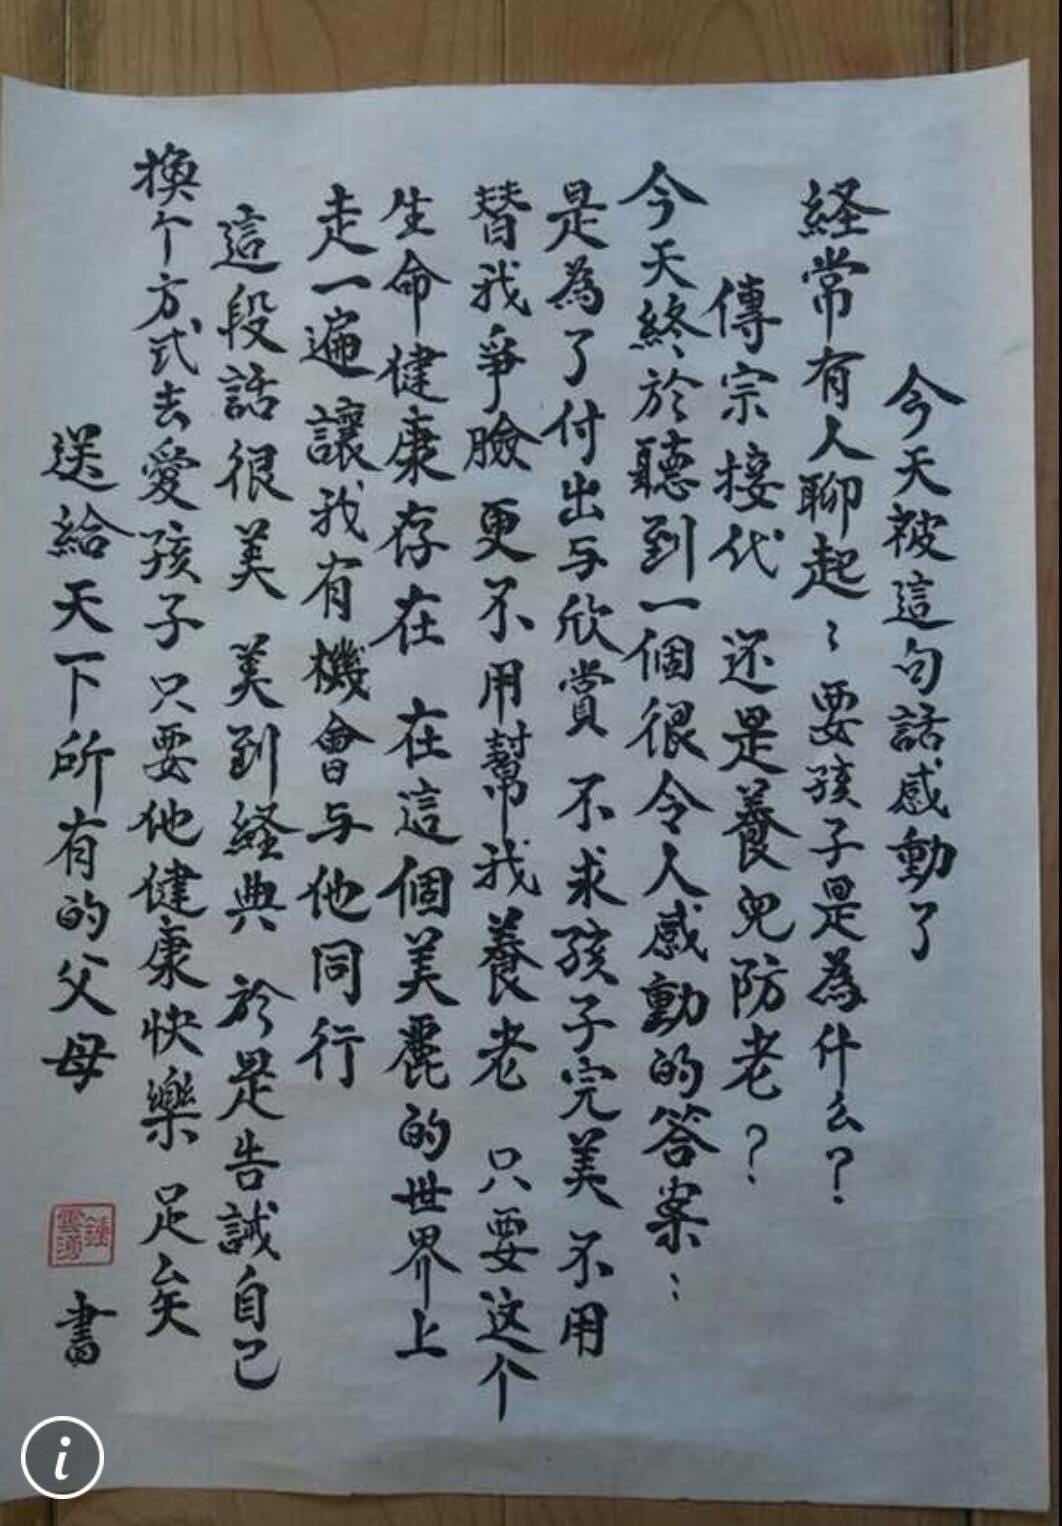 今天被這句話感動了
経常有人聊起：要孩子是為什么？
傳宗接代 还是養兒防老？
今天終於聽到一個很令人感動的答案：
是為了付出与欣賞 不求孩子完美 不用
替我爭臉 更不用幫我養老 只要这个
生命健康存在 在這個美麗的世界上
走一遍 讓我有機會与他同行
這段話很美 美到経典 於是告誡自己
換个方式去愛孩子只要他健康快樂 足矣
送給天下所有的父母 書